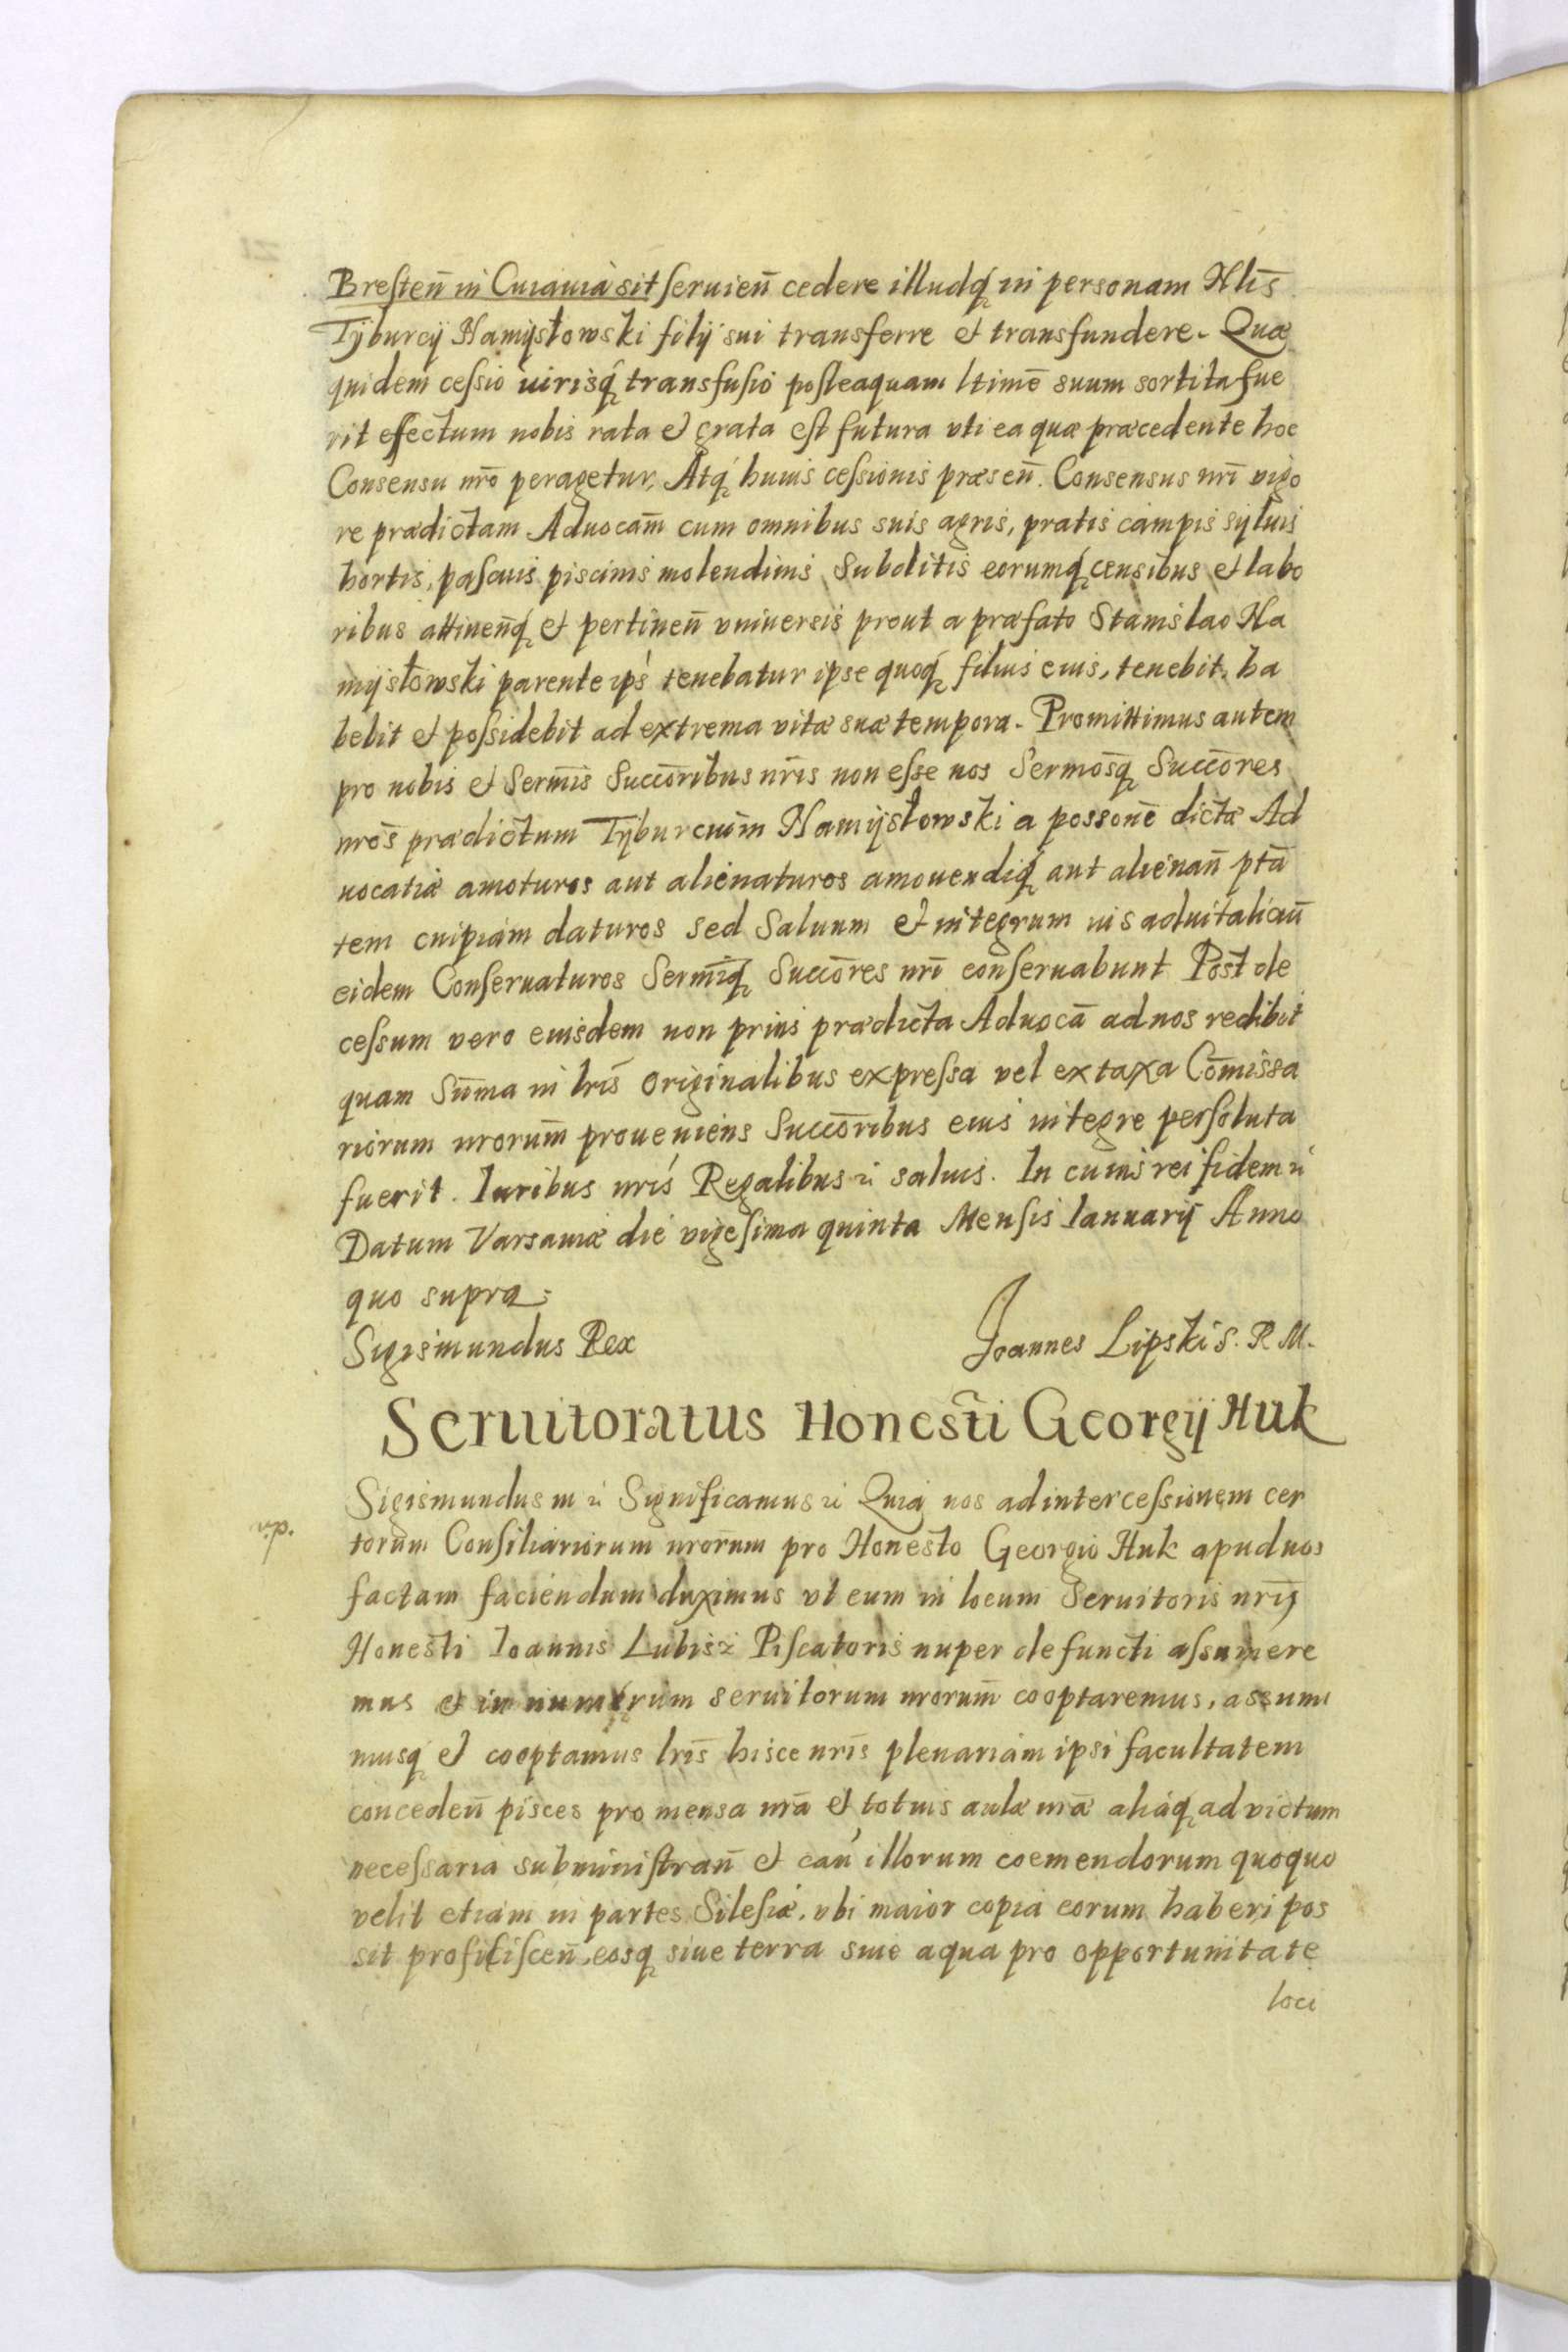 Bresteñ in Cuiauia sit seruieñ cedere illudq́ in personam Nlis̄
Tyburcÿ Namysłowski filÿ sui transferre et transfundere. Quæ
quidem cessio iurisq́ transfusio posteaquam ltime̅ suum sortita fue
rit effectum nobis rata et grata est futura vti ea quæ præcedente hoc
Consensu nr̄o peragetur. Atq́ huius cessionis præseñ. Consensus nr̄i vigo
re prædictam Aduocam̄ cum omnibus suis agris, pratis campis syluis
hortis, pascuis piscinis molendinis subditis eorumq́ censibus et labo
ribus attineñq́ et pertineñ vniuersis prout a præfato Stanislao Na
mysłowski parente ips̀ tenebatur ipse quoq́ filius eius, tenebit, ha
bebit et possidebit ad extrema vitæ suæ tempora. Promittimus autem
pro nobis et Serm̄is Succōribus nr̄is non esse nos Sermōsq́ Succōres
nrōs prædictum Tyburcium Namysłowski a possone̅ dictæ Ad
uocatiæ amoturos aut alienaturos amouendiq́ aut alienañ ptā
tem cuipiam daturos sed saluum et integrum ius aduitalicūm
eidem Conseruaturos Serm̄iq́ Succōres nr̄i conseruabunt Post de
cessum vero eiusdem non prius prædicta Aduocā ad nos redibit
quam Sum̄a in lris̄ originalibus expressa vel ex taxa Com̄issa
riorum nrorum̄ proueniens Succōribus eius integre persoluta
fuerit. Iuribus nris̄ Regalibus &c saluis. In cuius rei fidem &c
Datum Varsauiæ die vigesima quinta Mensis Ianuarÿ Anno
quo supra.
Sigismundus Rex Joannes Lipski S. R. M.
Seruitoratus Honesti Georgÿ Huk
Sigismundus III &c Significamus &c Quia nos ad intercessionem cer
torum Consiliariorum nrorum̄ pro Honesto Georgio Huk apud nos
factam faciendum duximus vt eum in locum Seruitoris nri̅
Honesti Ioannis Lubisz Piscatoris nuper defuncti assumere
mus et in numerum seruitorum nrorum̄ cooptaremus, assumi
musq́ et cooptamus lris̄ hisce nris̄ plenariam ipsi facultatem
concedeñ pisces pro mensa nrā et totius aulæ nrǣ aliaq́ ad victum
necessaria subministrañ et cañ illorum coemendorum quoquo
velit etiam in partes Silesiæ, vbi maior copia eorum haberi pos
sit proficisceñ, eosq́ siue terra siue aqua pro opportunitate
loci